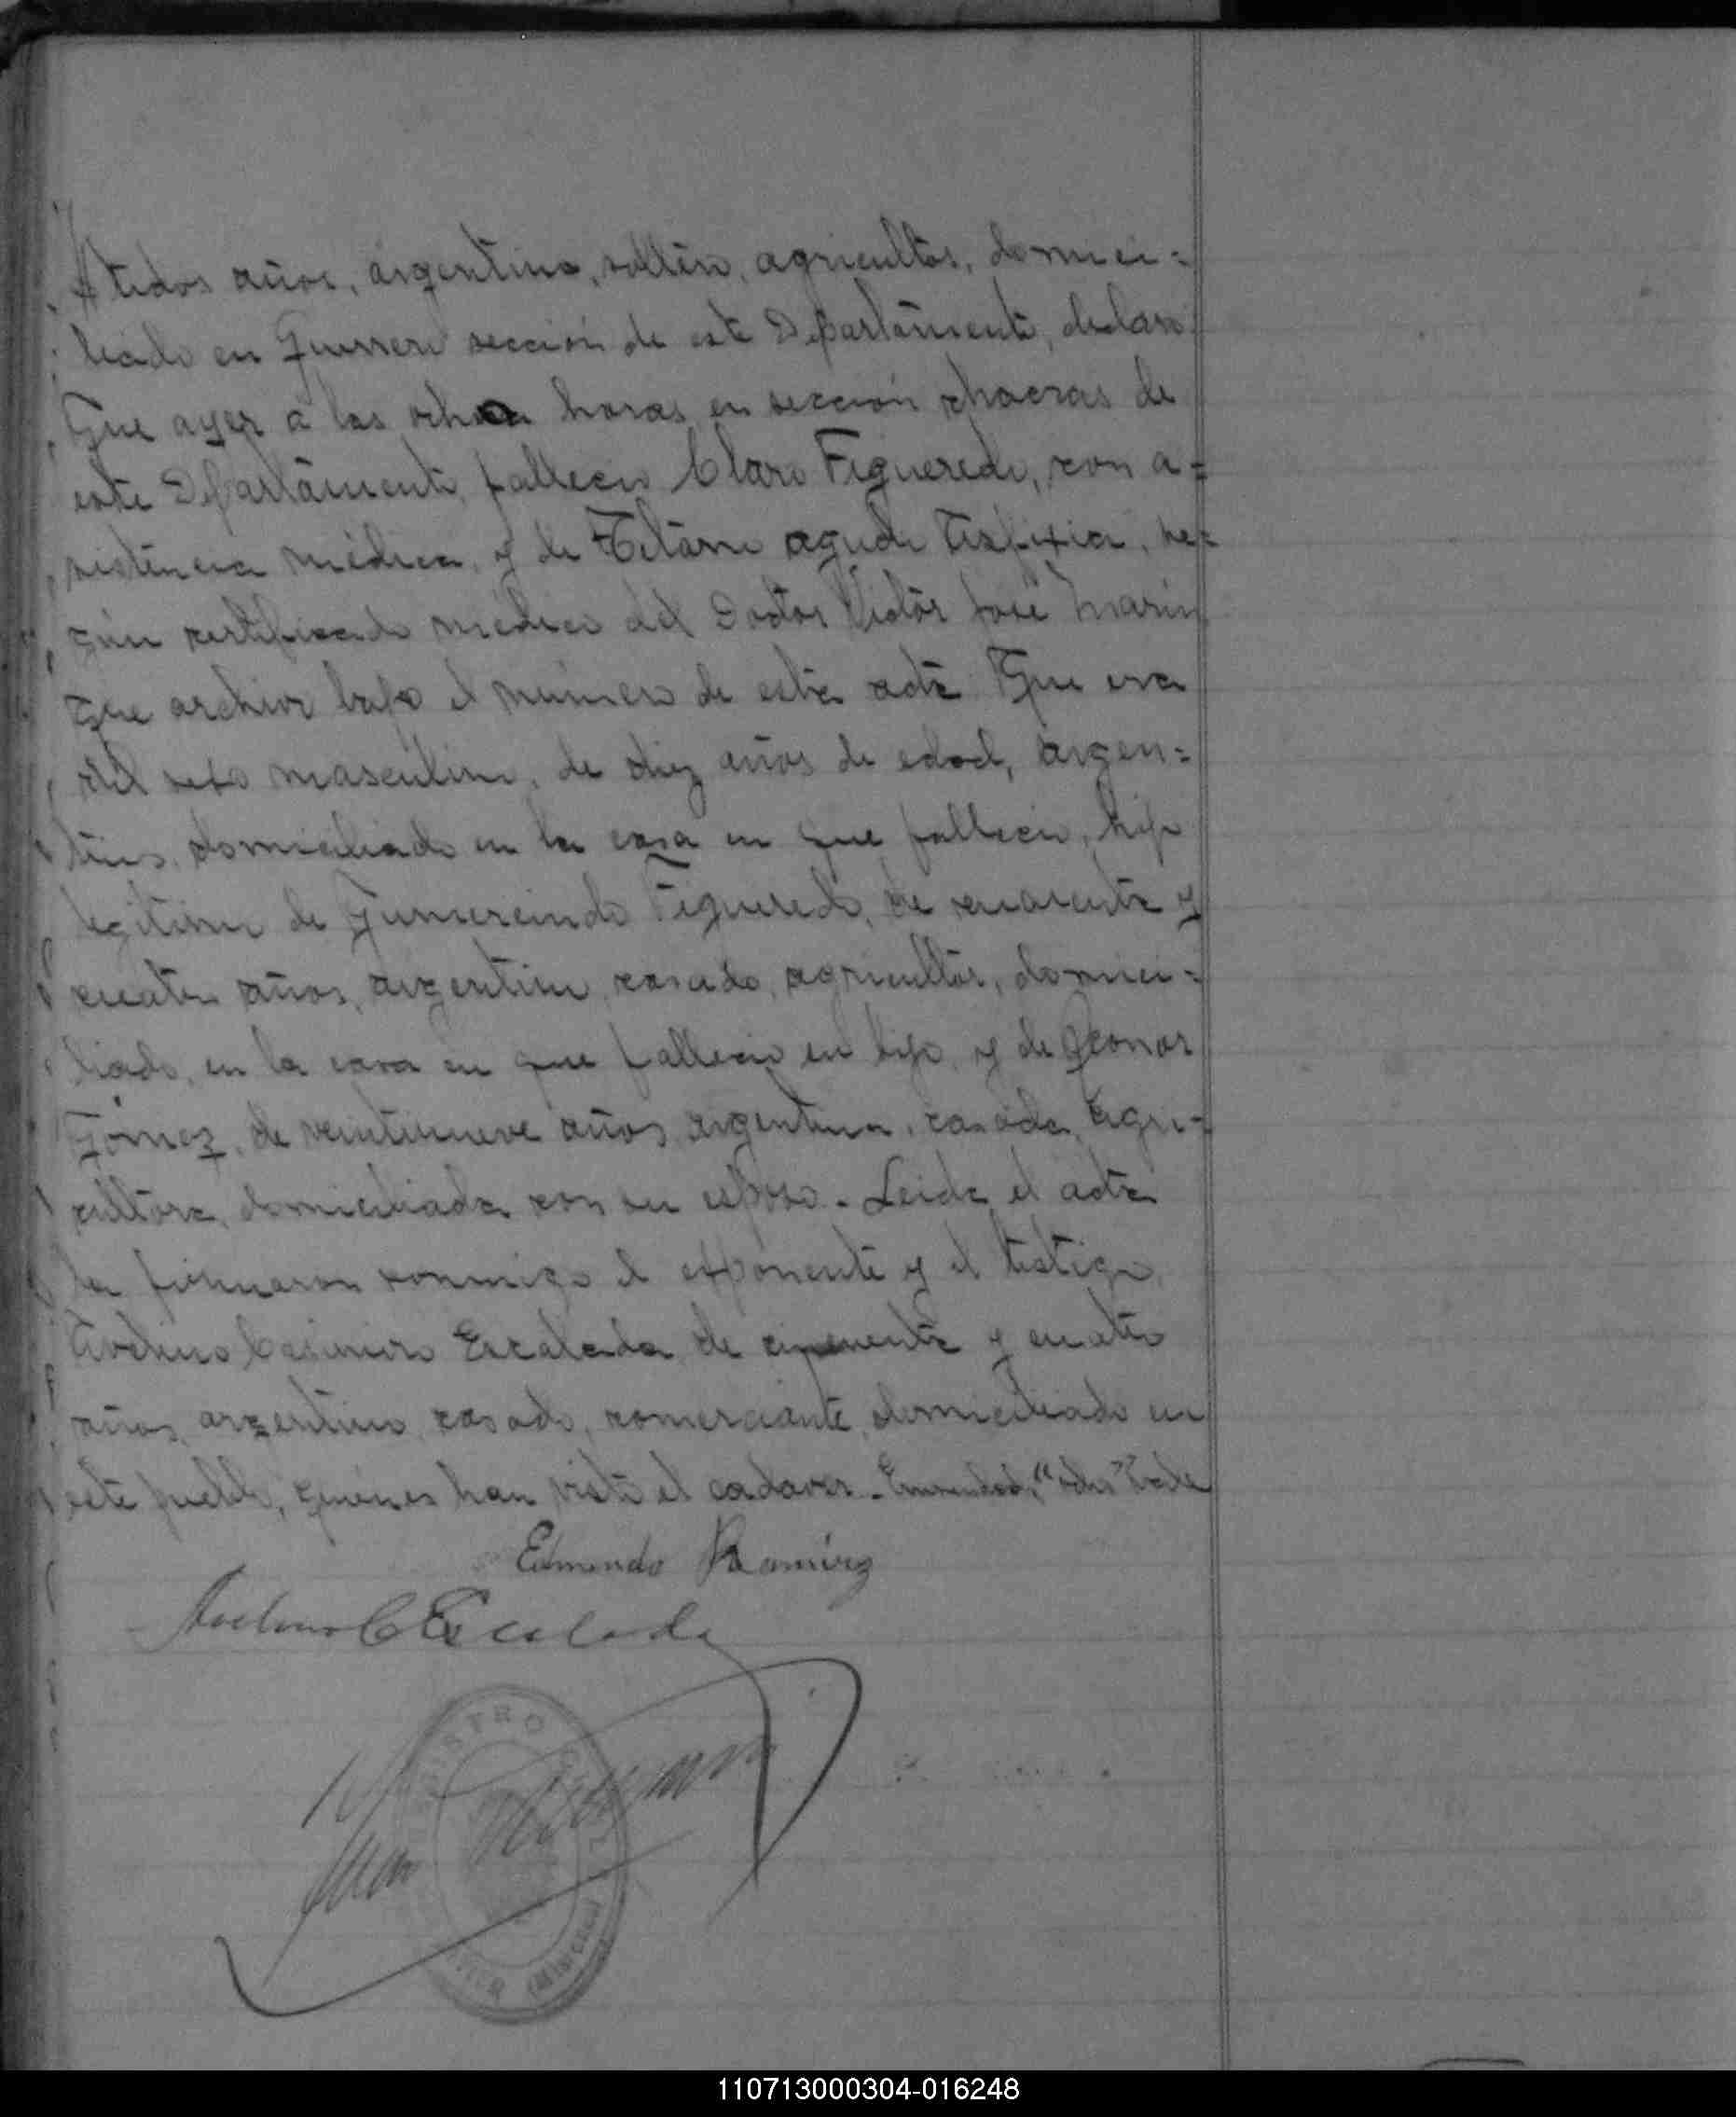 tidos años, argentino, soltero, agricultor, domici=
liado en Guerrero sección de este Departamento, declaró
Que ayer á las ocho horas, en sección chacras de
este Departamento, falleció Claro Figueredo, con a=
sistencia médica, y de Tétano agudo Asfixia, se=
gún certificado médico del Doctor Victor José Marín
que archivo bajo el número de esta acta. Que era
del sexo masculino, de diez años de edad, argen=
tino, domiciliado en la casa en que falleció, hijo
legítimo de Gumercindo Figueredo, de cuarenta y
cuatro años, argentino, casado, agricultor, domici=
liado, en la casa en que falleció su hijo, y de Leonor
Gómez, de veintinueve años, argentina, casada, agri=
cultora, domiciliada con su esposo.- Leida el acta
la firmaron conmigo el exponente y el testigo,
Avelino Casimiro Escalada, de cincuenta y cuatro
años, argentino, casado, comerciante, domiciliado en
este pueblo, quienes han visto el cadaver.- Enmendado: " " Vale
Edmundo Ramirez
Avelino C Escalada
REGISTRO
Juan